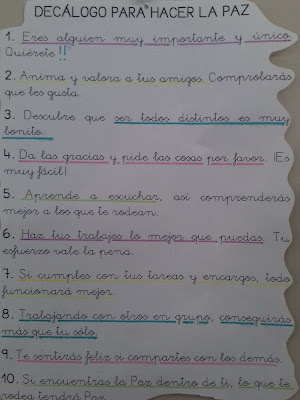 DECÁLOGO PARA HACER LA PAZ
1. Eres alguien muy importante y único.
Quiérete!!
2. Anima y valora a tus amigos. Comprobarás
que les gusta.
3. Descubre que ser todos distintos es muy
bonito.
4. Da las gracias y pide las cosas por favor. ¡Es
muy fácil!
5. Aprende a escuchar, así comprenderás
mejor a los que te rodean.
6. Haz tus trabajos lo mejor que puedas. Tu
esfuerzo vale la pena.
7. Si cumples con tus tareas y encargos, todo
funcionará mejor.
8. Trabajando con otros en grupo, conseguirás
más que tú sólo.
9. Te sentirás feliz si compartes con los demás.
10. Si encuentras la Paz dentro de ti, lo que te
rodea tendrá Paz.